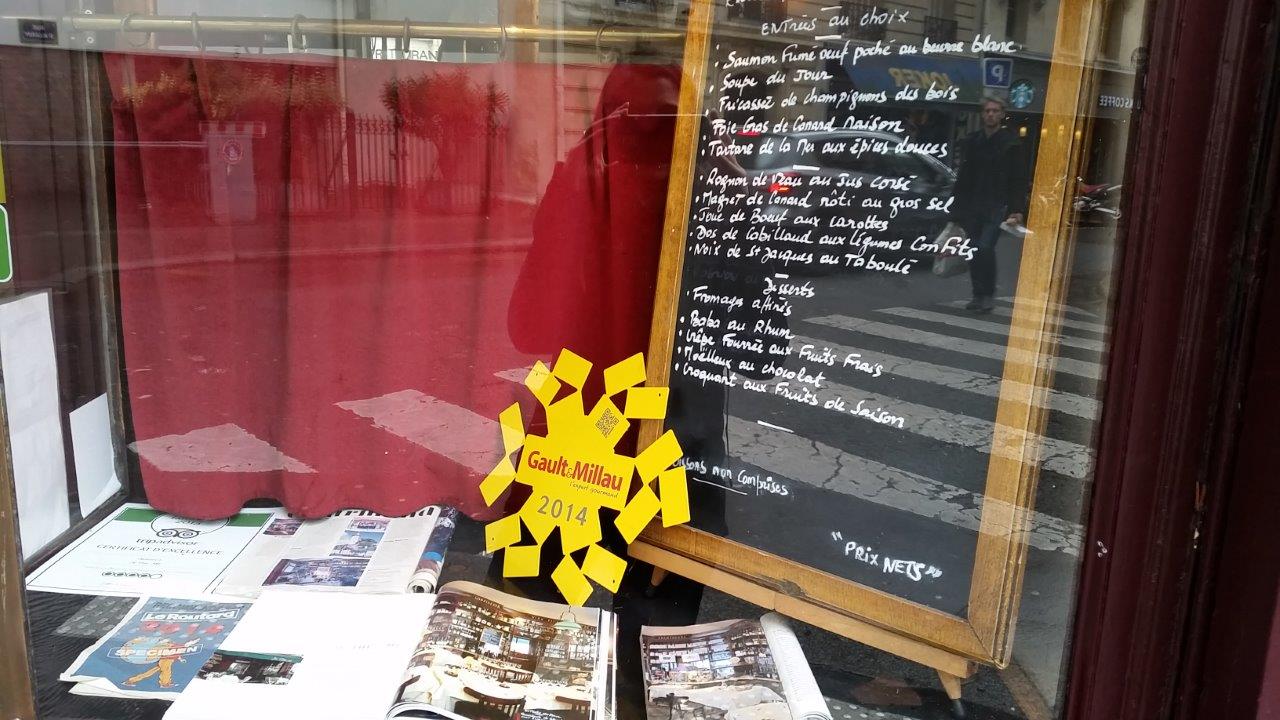 ENTRÉES au choix
• Saumon Fumé oeuf poché au beurre blanc
• Soupe du Jour
• Fricassée de champignons des bois
• Foie Gras de Canard Maison
• Tartare de la Mer aux épices douces
• Rognon de Veau au Jus corsé
• Magret de Canard rôti au gros sel
• Joue de Boeuf aux carottes
• Dos de Cabillaud aux légumes Confits
• Noix de St Jacques au Taboulé
Desserts
• Fromages affinés
• Baba au Rhum
• Crêpe Fourrée aux Fruits Frais
• Moëlleux au chocolat
• Croquant aux Fruits de Saison
Boissons non Comprises
"PRIX NETS"
JOKER
P
COFFEE
Gault&Millau
l'expert gourmand
2014
tripadvisor
CERTIFICAT D'EXCELLENCE
Le Routard
SPECIMEN